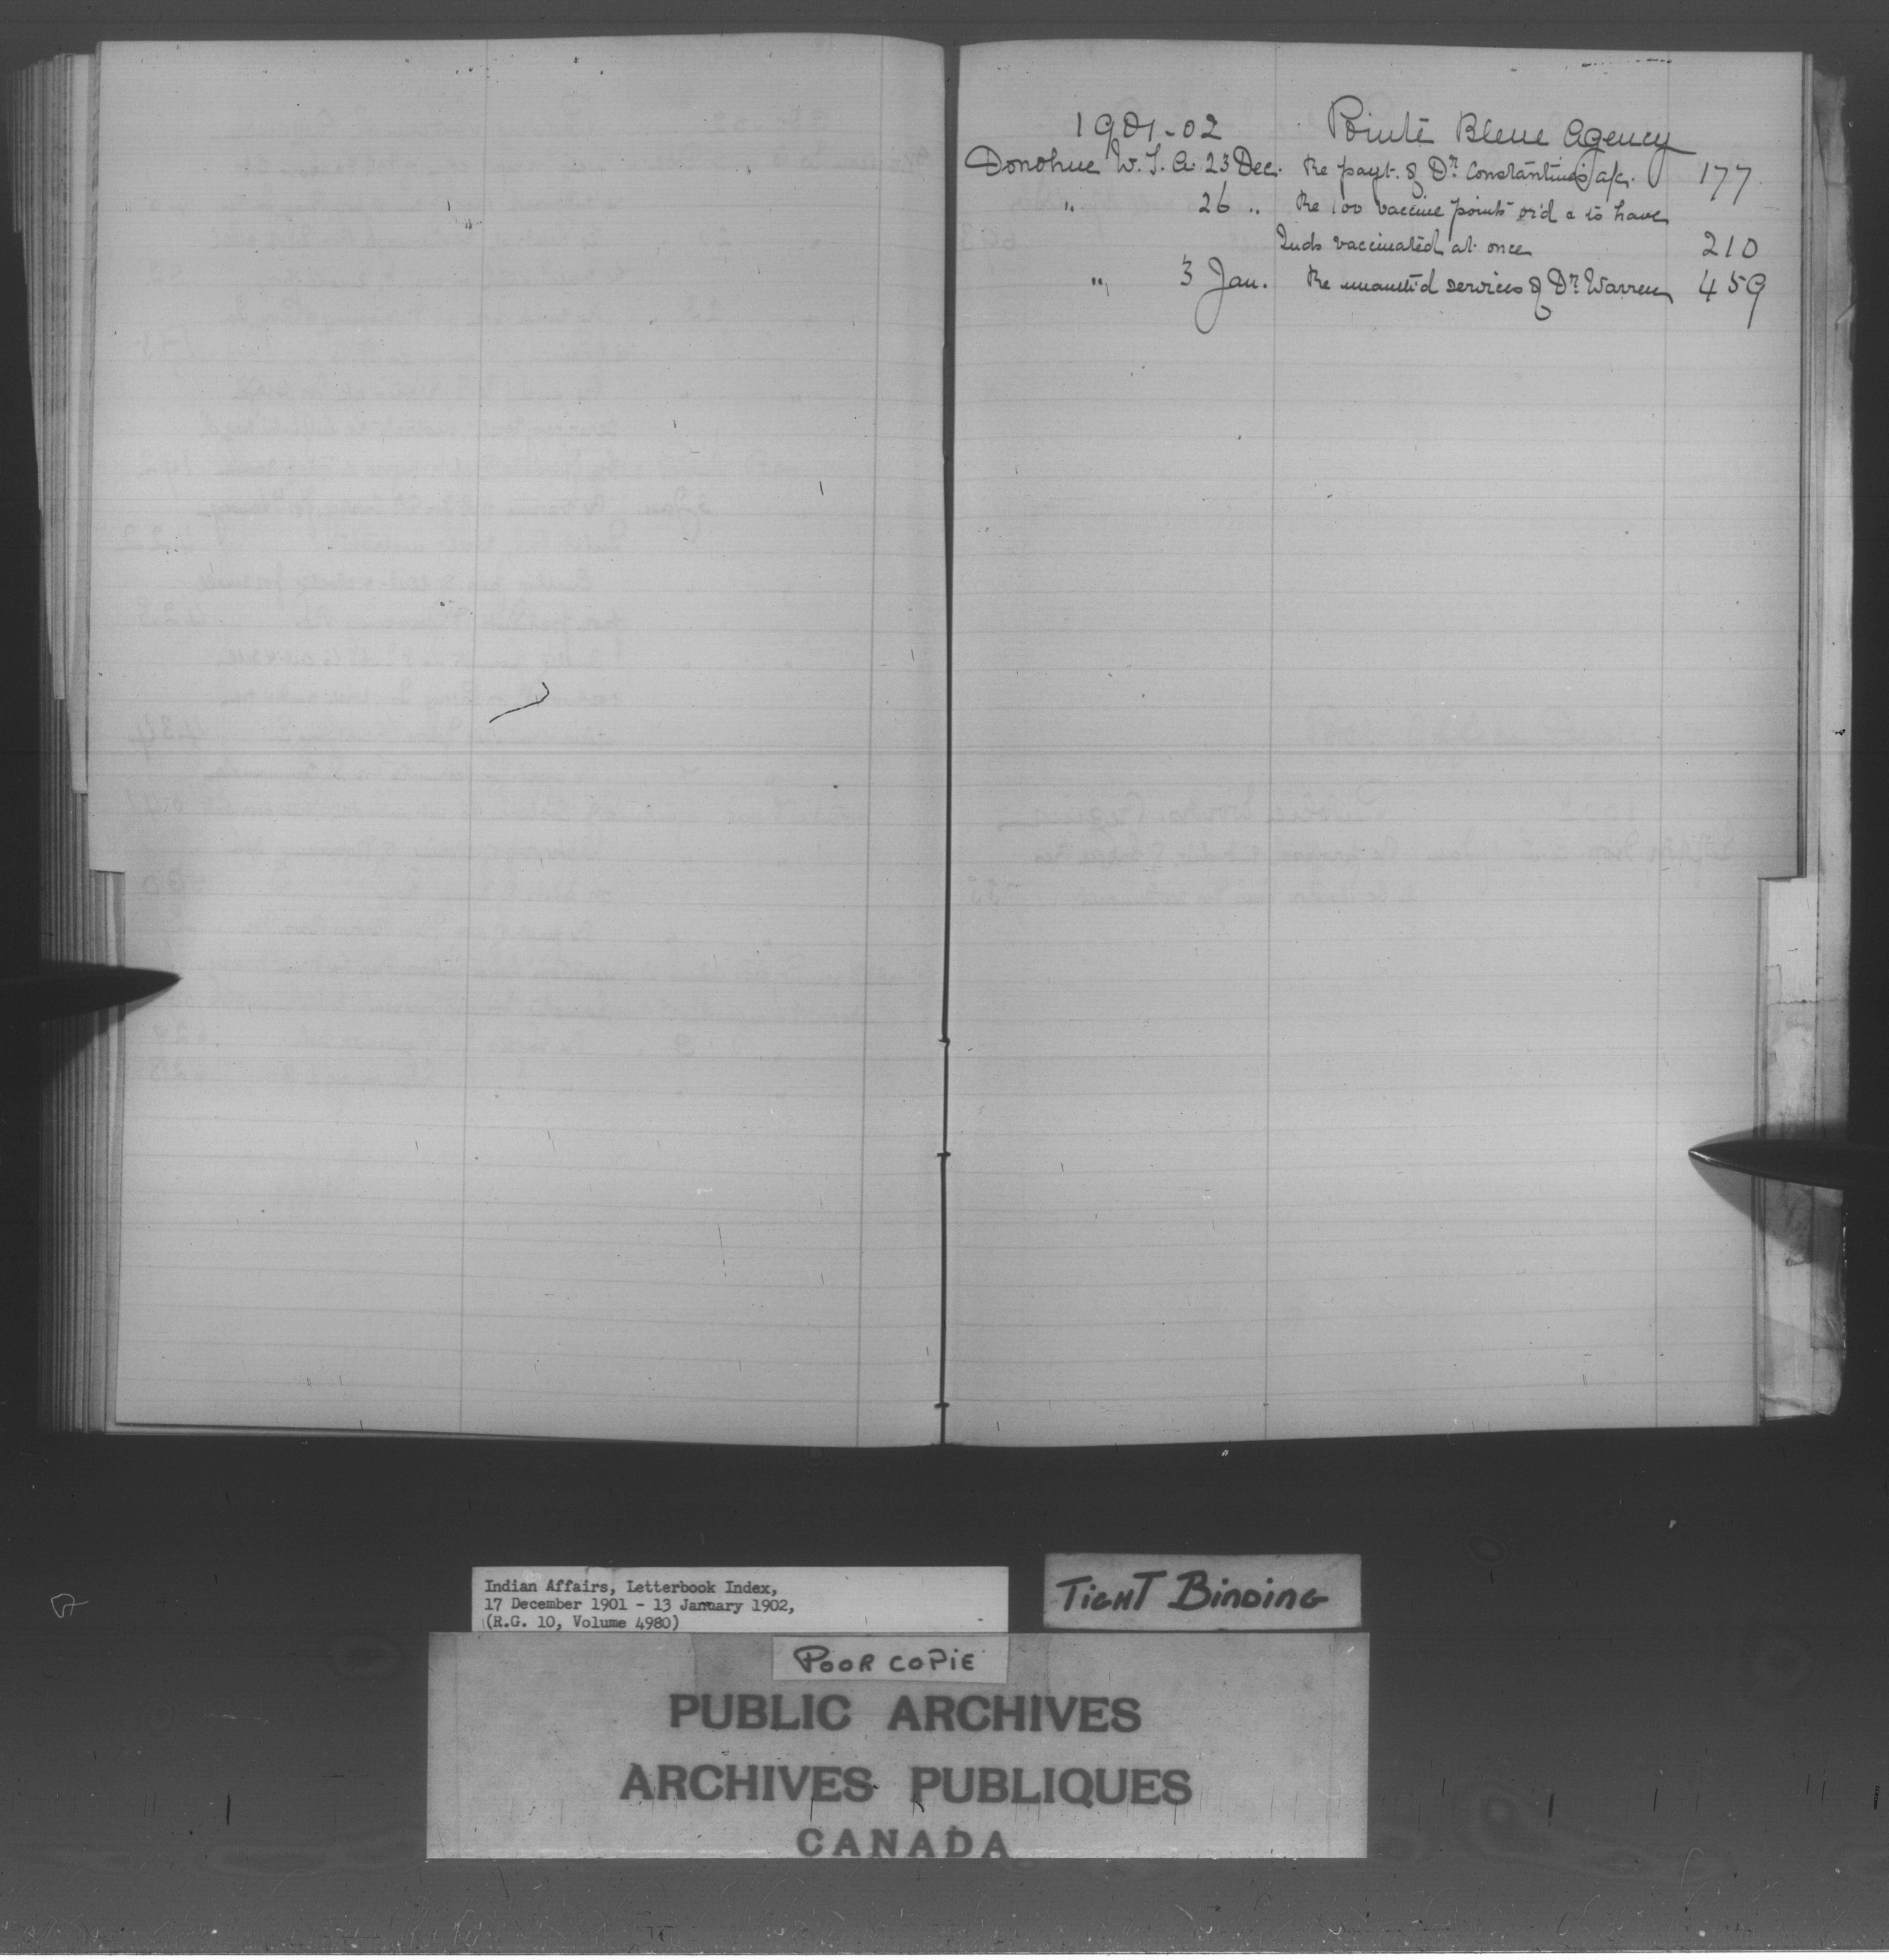 1901-02 Pointe Bleue Agency
Donohue W. T. A. 23 Dec. Re payt. of Dr. Constantin's a/c. 177
" 26 " Re 100 vaccine points or'd & to have
Inds vaccinated at once 210
" 3 Jan. Re unauth'd services of Dr. Warren 459
Indian Affairs, Letterbook Index,
17 December 1901 - 13 January 1902,
(R.G. 10, Volume 4980)
TIGHT BINDING
POOR COPIE
PUBLIC ARCHIVES
ARCHIVES PUBLIQUES
CANADA